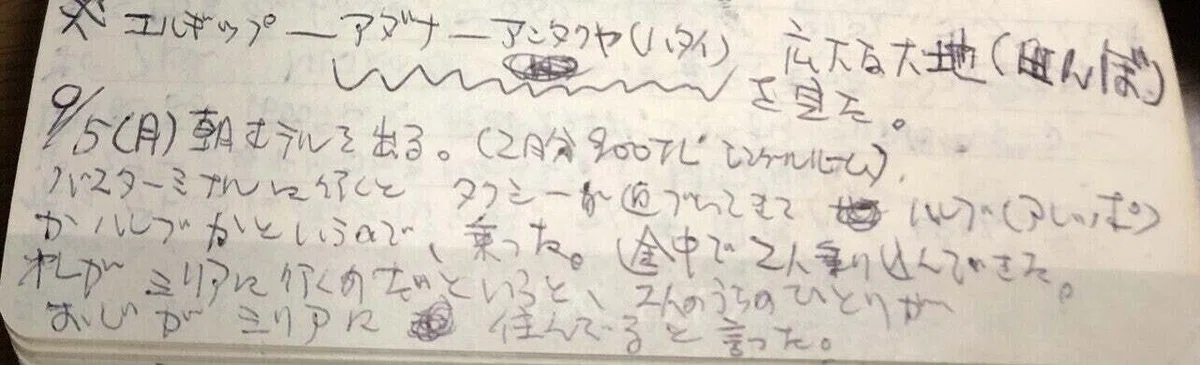 ※エルギップ―アダナ―アンタクヤ(ハタイ) 広大な大地(田んぼ)
を見た。
9/5(月)朝ホテルを出る。(2日分900TL シングルルーム)
バスターミナルに行くと タクシーが近づいてきて ハルブ(アレッポ)
かハルブかというので、乗った。途中で2人乗り込んできた。
おれがシリアに行くのだというと、2人のうちのひとりが
おじがシリアに 住んでいると言った。